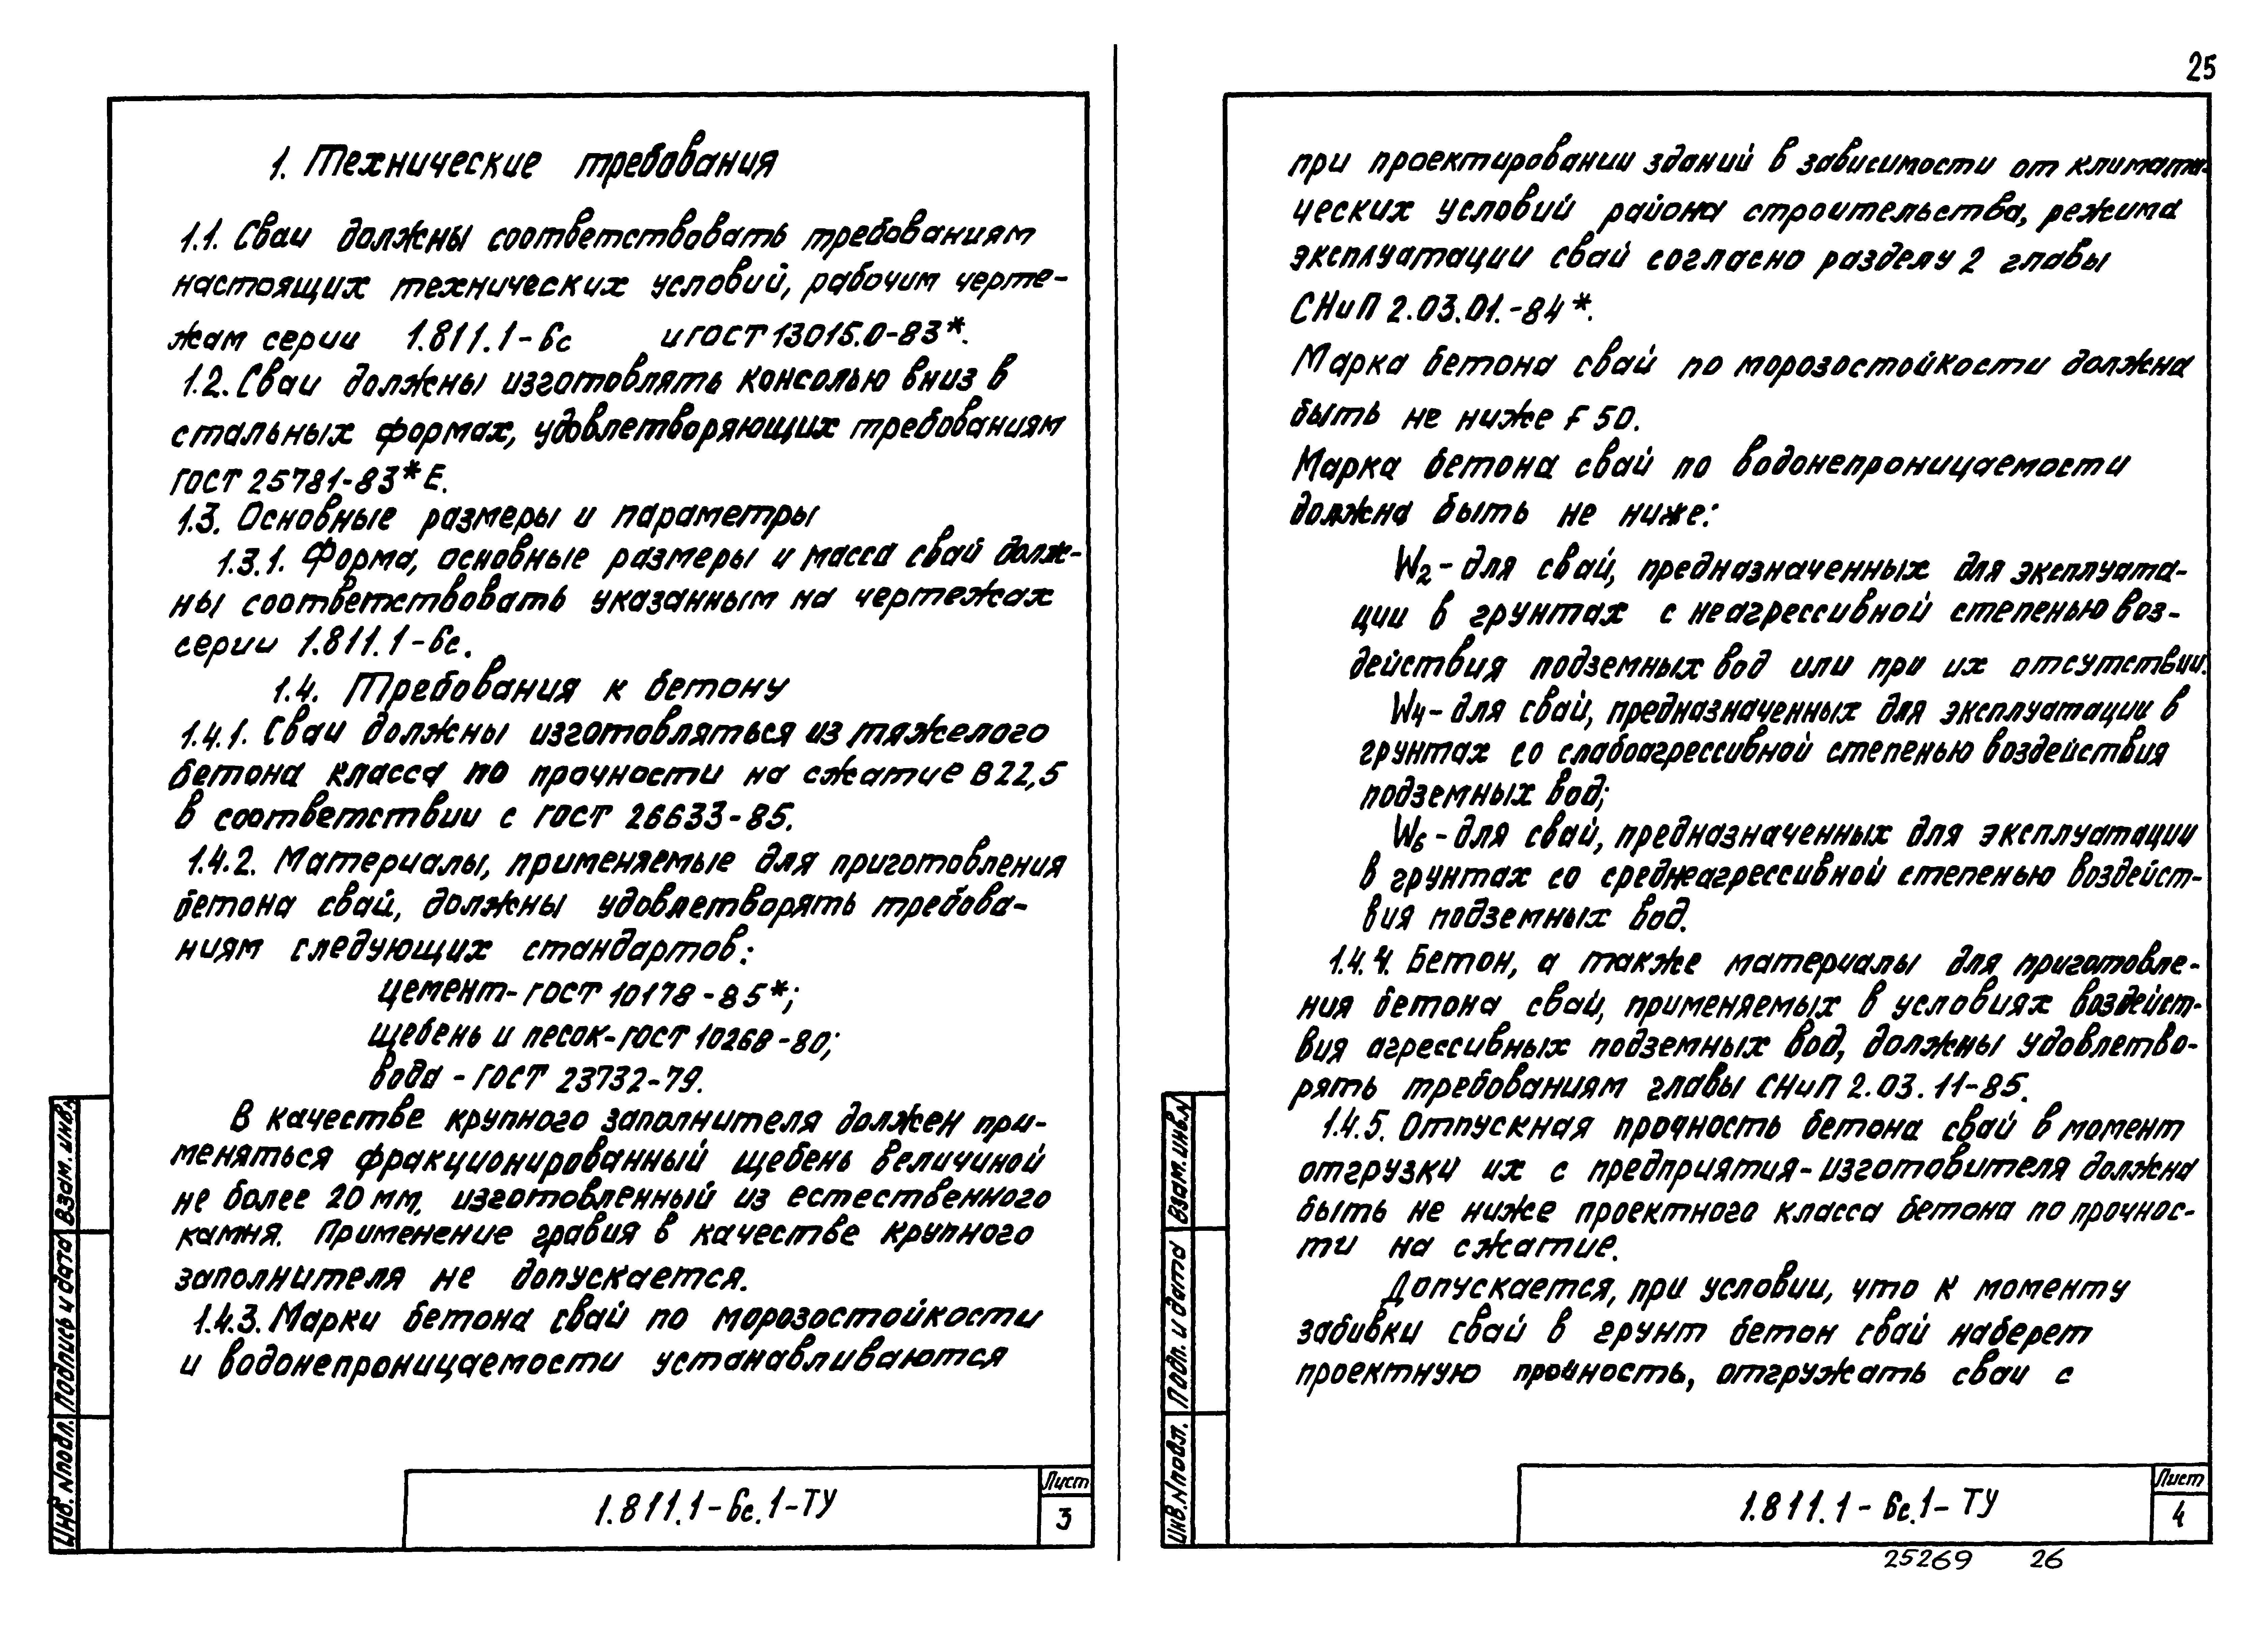 25
1. Технические требования
1.1. Сваи должны соответствовать требованиям
настоящих технических условий, рабочим черте-
жам серии 1.811.1-6с и ГОСТ 13015.0-83*.
1.2. Сваи должны изготовлять консолью вниз в
стальных формах, удовлетворяющих требованиям
ГОСТ 25781-83*Е.
1.3. Основные размеры и параметры
1.3.1. Форма, основные размеры и масса свай долж-
ны соответствовать указанным на чертежах
серии 1.811.1-6с.
1.4. Требования к бетону
1.4.1. Сваи должны изготовляться из тяжелого
бетона класса по прочности на сжатие В22,5
в соответствии с ГОСТ 26633-85.
1.4.2. Материалы, применяемые для приготовления
бетона свай, должны удовлетворять требова-
ниям следующих стандартов:
цемент-ГОСТ 10178-85*;
щебень и песок-ГОСТ 10268-80;
вода - ГОСТ 23732-79.
В качестве крупного заполнителя должен при-
меняться фракционированный щебень величиной
не более 20 мм, изготовленный из естественного
камня. Применение гравия в качестве крупного
заполнителя не допускается.
1.4.3. Марки бетона свай по морозостойкости
и водонепроницаемости устанавливаются
Инв. N подл. Подпись и дата Взам. инв. N
1.811.1-6с.1-ТУ
Лист
3
при проектировании зданий в зависимости от климати-
ческих условий района строительства, режима
эксплуатации свай согласно разделу 2 главы
СНиП 2.03.01.-84*.
Марка бетона свай по морозостойкости должна
быть не ниже F 50.
Марка бетона свай по водонепроницаемости
должна быть не ниже:
W2-для свай, предназначенных для эксплуата-
ции в грунтах с неагрессивной степенью воз-
действия подземных вод или при их отсутствии.
W4-для свай, предназначенных для эксплуатации в
грунтах со слабоагрессивной степенью воздействия
подземных вод;
W6-для свай, предназначенных для эксплуатации
в грунтах со среднеагрессивной степенью воздейст-
вия подземных вод.
1.4.4. Бетон, а также материалы для приготовле-
ния бетона свай, применяемых в условиях воздейст-
вия агрессивных подземных вод, должны удовлетво-
рять требованиям главы СНиП 2.03.11-85.
1.4.5. Отпускная прочность бетона свай в момент
отгрузки их с предприятия-изготовителя должна
быть не ниже проектного класса бетона по прочнос-
ти на сжатие.
Допускается, при условии, что к моменту
забивки свай в грунт бетон свай наберет
проектную прочность, отгружать сваи с
Инв. N подл. Подп. и дата Взам. инв. N
1.811.1-6с.1-ТУ
Лист
4
25269 26